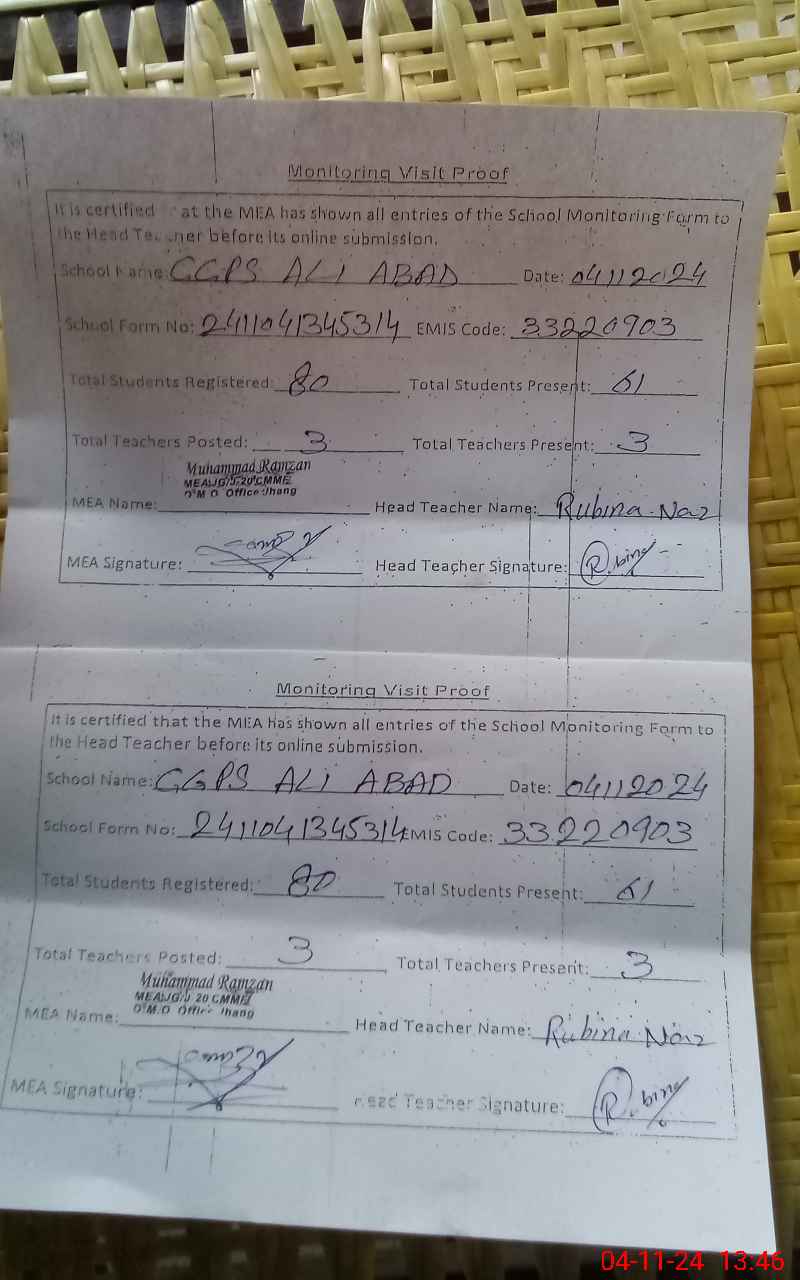 Monitoring Visit Proof
It is certified at the MEA has shown all entries of the School Monitoring Form to
the Head Teacher before its online submission.
School Name: GGPS ALI ABAD Date: 04112024
School Form No: 2411041345314 EMIS Code: 33220903
Total Students Registered: 80 Total Students Present: 61
Total Teachers Posted: 3 Total Teachers Present: 3
Muhammad Ramzan
D.M.O Office Jhang
MEA Name: Head Teacher Name: Rubina Naz
MEA Signature: Head Teacher Signature: Rubina
Monitoring Visit Proof
It is certified that the MEA has shown all entries of the School Monitoring Form to
the Head Teacher before its online submission.
School Name: GGPS ALI ABAD Date: 04112024
School Form No: 2411041345314 EMIS Code: 33220903
Total Students Registered: 80 Total Students Present: 61
Total Teachers Posted: 3 Total Teachers Present: 3
Muhammad Ramzan
D.M.O Office Jhang
MEA Name: Head Teacher Name: Rubina Naz
MEA Signature: Head Teacher Signature: Rubina
04-11-24 13:46